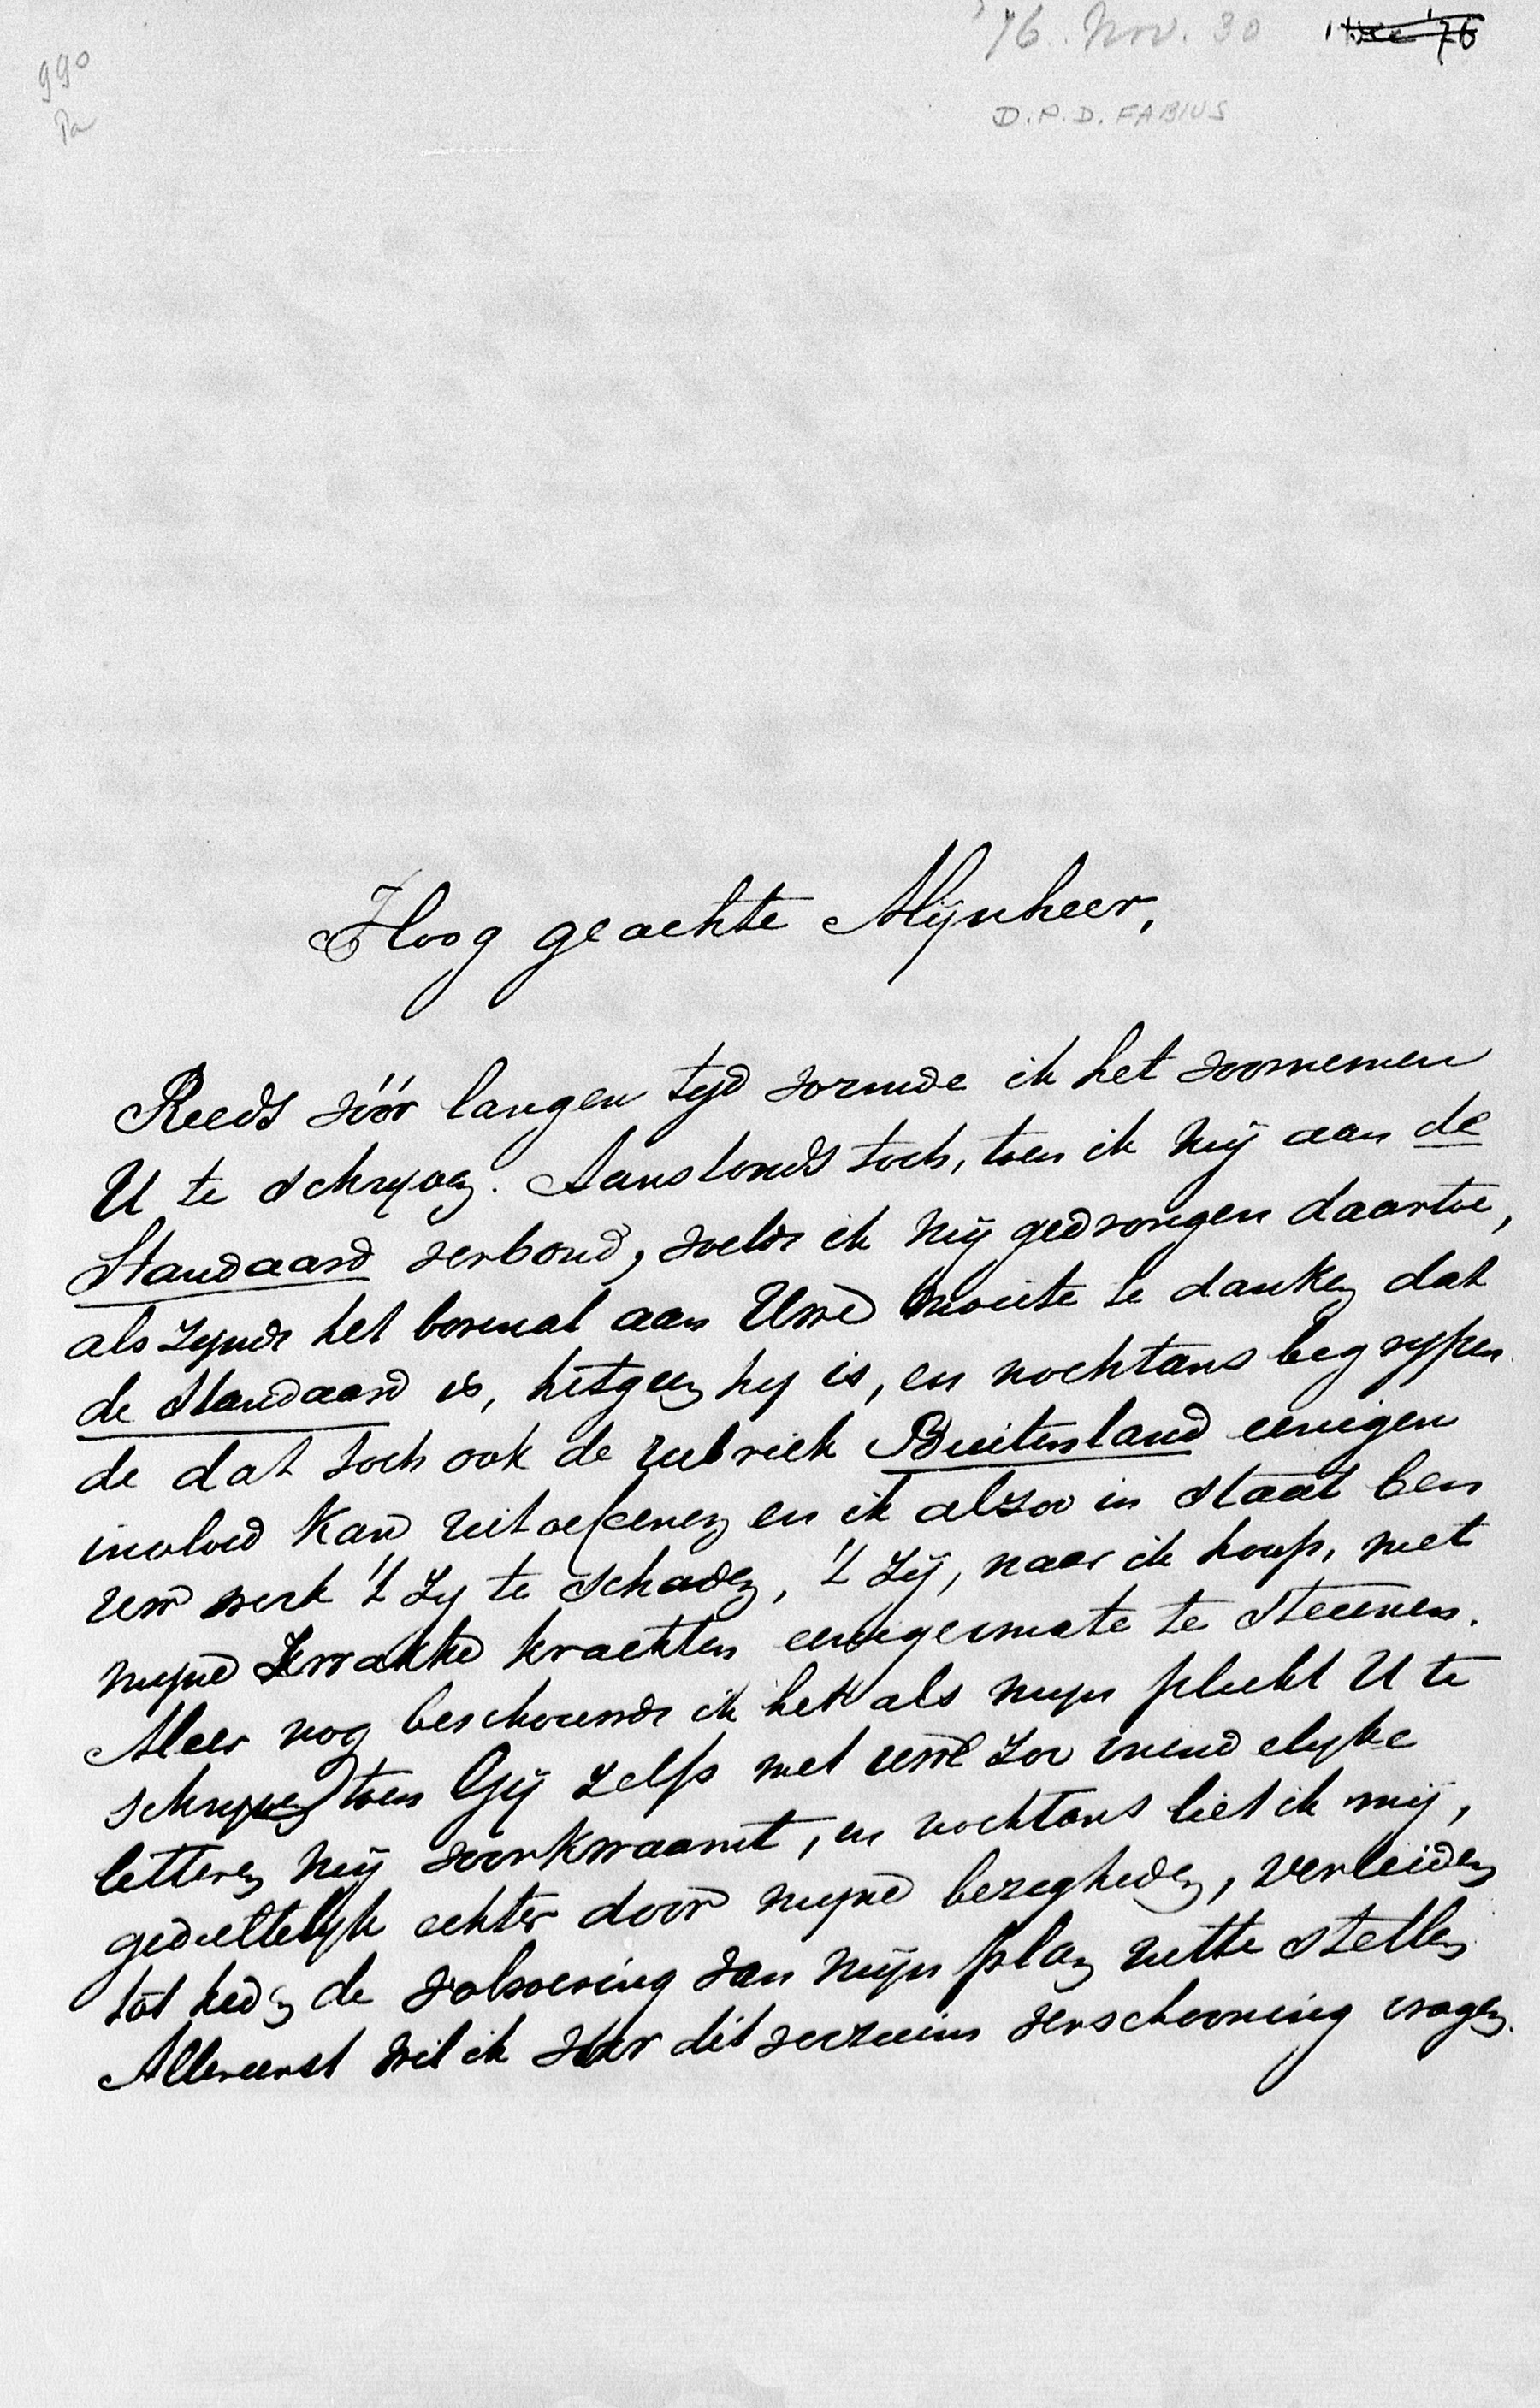 '76. Nov. 30 1 Dec '76
990
Pa
D.P.D. FABIUS
Hoog geachte Mijnheer,
Reeds vóór langen tijd vormde ik het voornemen
U te schrijven. Aanstonds toch, toen ik mij aan de
Standaard verbond, voelde ik mij gedrongen daartoe,
als zijnde het bovenal aan Uwe moeite te danken dat
de Standaard is, hetgeen hij is, en nochtans begrijpen
de dat toch ook de rubriek Buitenland eenigen
invloed kan uitoefenen en ik alzoo in staat ben
uw werk 't zij te schaden, 't zij, naar ik hoop, met
mijne zwakke krachten eenigermate te steunen.
Meer nog beschouwde ik het als mijn plicht U te
schrijven toen Gij zelfs met uwe zoo vriendelijke
letteren mij voorkwaamt, en nochtans liet ik mij,
gedeeltelijk echter door mijne bezigheden, verleiden
tot heden de volvoering van mijn plan uit te stellen.
Allereerst wil ik voor dit verzuim verschooning vragen.